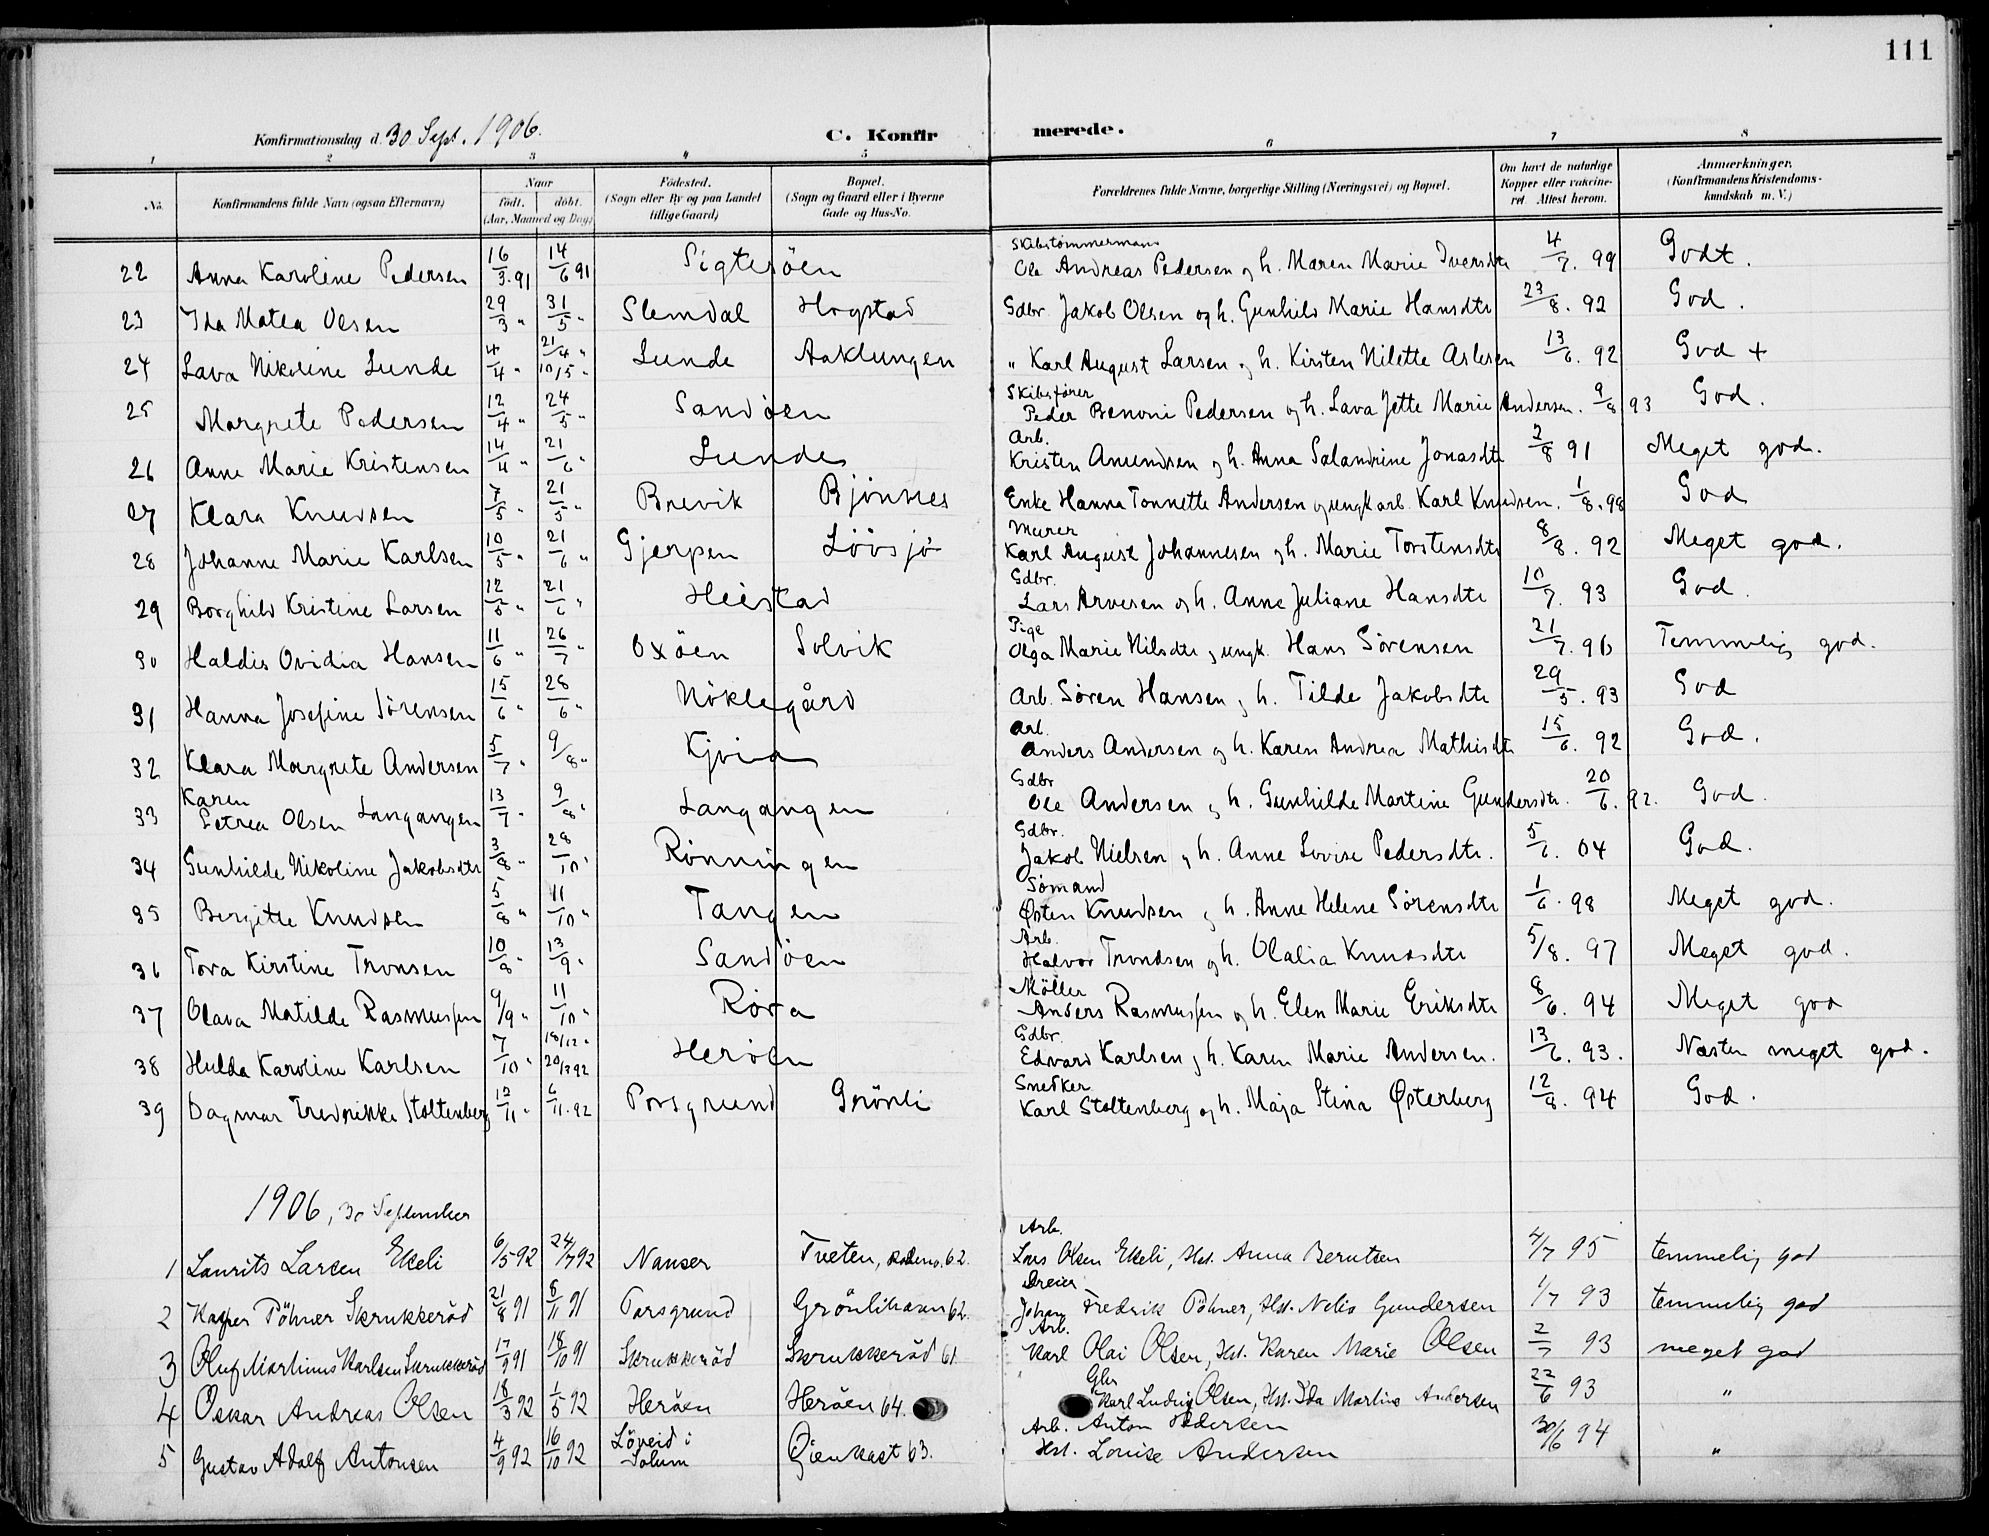 111
Konfirmationsdag d. 30 Sept. 1906.
C. Konfirmerede.
1 2 3 4 5 6 7 8
No.
Konfirmandens fulde Navn (ogsaa Efternavn)
Naar født. døbt. (Aar, Maaned og Dag)
Fødested. (Sogn eller By og paa Landet tillige Gaard)
Bopæl. (Sogn og Gaard eller i Byerne Gade og Hus-No.
Forældrenes fulde Navne, borgerlige Stilling (Næringsvei) og Bopæl.
Om havt de naturlige Kopper eller vaccineret. Attest herom.
Anmærkninger. (Konfirmandens Kristendomskundskab m. V.)
22 Anna Karoline Pedersen 16/3.91 14/6 91 Sigtesöen Skibstømmermann Ole Andreas Pedersen og h. Maren Marie Iversdtr 4/7. 99 Godt.
23 Ida Matea Olsen 29/3 " 31/5 " Slemdal Hogstad Gdbr. Jakob Olsen og h. Gunhild Marie Hansdtr 23/8. 92 God.
24 Lava Nikoline Lunde 4/4 " 21/4 " 10/5 " Lunde Aaklungen " Karl August Larsen og h. Kirsten Nilette Aslesen 13/6. 92 God +
25 Margrete Pedersen 12/4 " 24/5 " Sandöen Skibsfører Peder Benoni Pedersen og h. Lava Jette Marie Andersen. 9/8 93 God.
26 Anne Marie Kristensen 14/4 " 21/6 " Lunde Arb. Kristen Amundsen og h. Anna Salandrine Jonasdtr 2/8 91 Meget god.
27 Klara Knudsen 7/5 " 21/5 " Brevik Bjönnes Enke Hanna Tonnette Andersen og ungk. arb. Karl Knudsen. 1/8. 98 God
28 Johanne Marie Karlsen 10/5 " 21/6 " Gjerpen Lövsjö Murer Karl August Johannesen og h. Marie Torstensdtr 8/8. 92 Meget god.
29 Borghild Kristine Larsen 12/5 " 21/6 " Heistad Gdbr. Lars Arvesen og h. Anne Juliane Hansdtr 10/7. 93 God.
30 Haldis Ovidia Hansen 11/6 " 26/7 " Oxöen Solvik Pige Olga Marie Nilsdtr og ungk. Hans Sörensen 21/7. 96 Temmelig god.
31 Hanna Josefine Sörensen 15/6 " 28/6 " Nöklegård Arb. Sören Hansen og h. Tilde Jakobsdtr 29/5. 93 God
32 Klara Margrete Andersen 5/7 " 9/8 " Kjvia Arb. Anders Andersen og h. Karen Andrea Mathisdtr 15/6. 92 God.
33 Karen Petrea Olsen Langangen 13/7 " 9/8 " Langangen Gdbr Ole Andersen og h. Gunhilde Martine Gundersdtr. 20/6. 92. God.
34 Gunhilde Nikoline Jakobsdtr 3/8 " 28/10 " Rönningen Gdbr. Jakob Nielsen og h. Anne Lovise Pedersdtr. 5/6. 04 God.
35 Bergitte Knudsen 5/8 " 11/10 " Tangen Sömand Østen Knudsen og h. Anne Helene Sörensdtr 1/6. 98 Meget god.
36 Tora Kirstine Tronsen 10/8 " 13/9 " Sandöen Arb. Halvor Trondsen og h. Olalia Knudsdtr 5/8. 97 Meget god.
37 Olava Matilde Rasmussen 9/9 " 11/10 " Röra Möller Anders Rasmussen og h. Elen Marie Eriksdtr 8/6. 94 Meget god
38 Hulda Karoline Karlsen 7/10 " 18/12 " 20/3 92 Heröen Gdbr. Edvard Karlsen og h. Karen Marie Andersen. 13/6. 93. Næsten meget god.
39 Dagmar Fredrikke Stoltenberg 12/11 " 6/11. 92 Porsgrund Grönli Snedker Karl Stoltenberg og h. Maja Stina Østerberg 12/8. 94 God.
1906, 30 September
1 Laurits Larsen Ekeli 6/5 92 24/7 92 Nanser Tveten, 62. Arb. Lars Olsen Ekeli, Hst. Anna Berntsen 4/7 95 temmelig god
2 Kasper Pöhner Skrukkeröd 21/8 91 8/11 91 Porsgrund Grönlihaven 62. Dreier Johan Fredrik Pöhner, Hst. Nelis Gundersen 1/7 93 temmelig god
3 Oluf Martinius Karlsen Skrukkeröd 17/9 91 18/10 91 Skrukkeröd Skrukkeröd 61 Arb. Karl Olai Olsen, Hst. Karen Marie Olsen 2/7 93 meget god
4 Oskar Andreas Olsen 18/3 92 1/5 92 Heröen Heröen 64. Gbr Karl Ludvig Olsen, Hst. Ida Martine Andersen 22/6 93 "
5 Gustav Adolf Antonsen 4/9 92 16/10 92 Löveid i Solum Öienkast 63. Arb. Anton Pedersen Hst. Louise Andersen 30/6 94 "